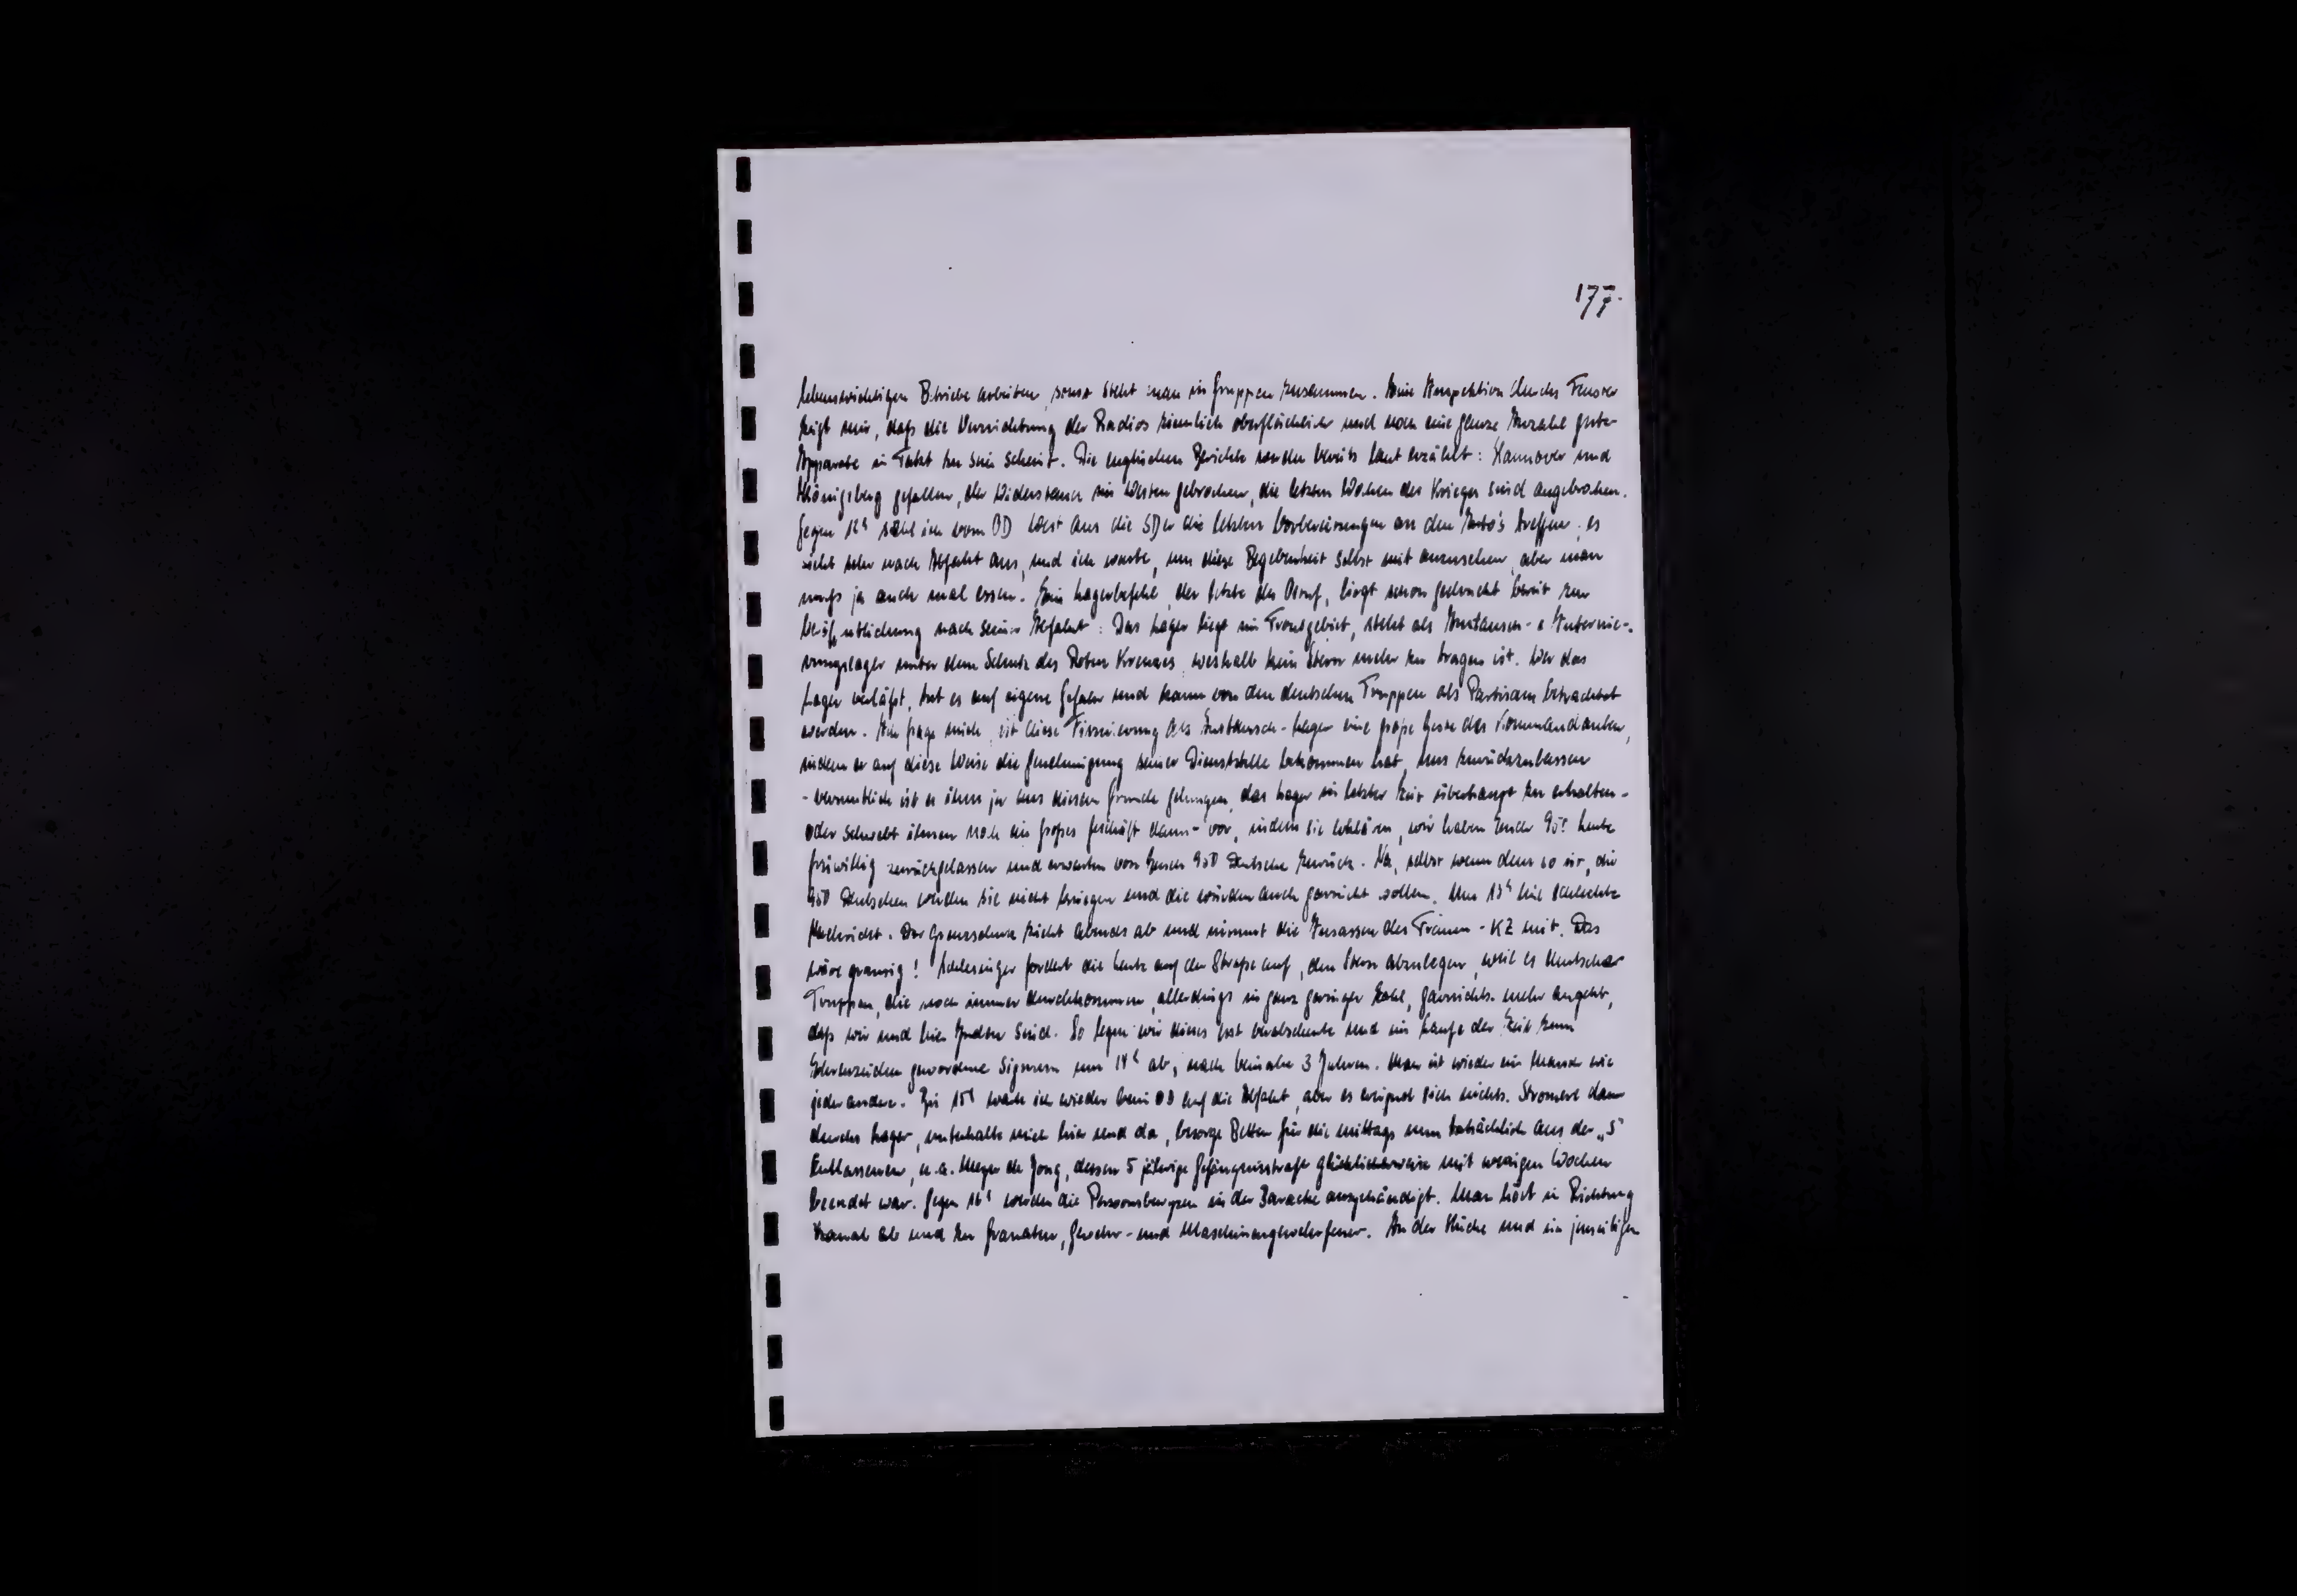 177.
lebenswichtigen Betriebe arbeiten, sonst steht man in Gruppen zusammen. Eine Inspektion durchs Fenster
zeigt mir, daß die Vernichtung der Radios ziemlich oberflächlich und noch eine ganze Anzahl guter
Apparate in Takt zu sein scheint. Die englischen Berichte werden bereits laut erzählt: Hannover und
Königsberg gefallen, der Widerstand im Westen gebrochen, die letzten Wochen des Krieges sind angebrochen.
Gegen 12h sehe ich vom OD West aus die SDer die letzten Vorbereitungen an den Auto's treffen, es
sieht sehr nach Abfahrt aus, und ich warte, um diese Begebenheit selbst mit anzusehen, aber man
muß ja auch mal essen. Ein Lagerbefehl, der letzte des Ostuf, liegt schon gedruckt bereit zur
Veröffentlichung nach seiner Abfahrt: Das Lager liegt im Frontgebiet, steht als Austausch- & Internie-
rungslager unter dem Schutz des Roten Kreuzes, weshalb kein Stern mehr zu tragen ist. Wer das
Lager verläßt, tut es auf eigene Gefahr und kann von den deutschen Truppen als Partisan betrachtet
werden. Ich frage mich, ist diese Firmierung als Austausch-Lager eine große Geste des Kommandanten,
indem er auf diese Weise die Genehmigung seiner Dienststelle bekommen hat, uns zurückzulassen
- vermutlich ist es ihm ja aus diesem Grunde gelungen, das Lager in letzter Zeit überhaupt zu erhalten -
oder schwebt ihnen noch ein großes Geschäft dann- vor, indem sie erklären, wir haben Euch 950 heute
freiwillig zurückgelassen und erwarten von Euch 950 Deutsche zurück. Na, selbst wenn dem so ist, die
950 Deutschen werden sie nicht kriegen und die würden auch garnicht wollen. Um 13h eine schlechte
Nachricht. Der Grenzschutz zieht abends ab und nimmt die Insassen des Frauen-KZ mit. Das
wäre grausig! Schlesinger fordert die Leute auf der Straße auf, den Stern abzulegen, weil es deutsche
Truppen, die noch immer durchkommen, allerdings in ganz geringer Zahl, garnichts mehr angeht,
daß wir und hier Juden sind. So legen wir dieses erst verabscheute und im Laufe der Zeit zum
Ehrenzeichen gewordene Signum um 14h ab, nach beinahe 3 Jahren. Man ist wieder ein Mensch wie
jeder andere. Bis 15h warte ich wieder beim OD auf die Abfahrt, aber es ereignet sich nichts. Stromere dann
durchs Lager, unterhalte mich hier und da, besorge Betten für die mittags nun tatsächlich aus der „S"
Entlassenen, u.a. Meyer de Jong, dessen 5 jährige Gefängnisstrafe glücklicherweise mit wenigen Wochen
beendet war. Gegen 16h werden die Persoonsbewyzen in der Baracke ausgehändigt. Man hört in Richtung
Kanal ab und zu Granaten, Gewehr- und Maschinengewehrfeuer. In der Küche und im jenseitigen